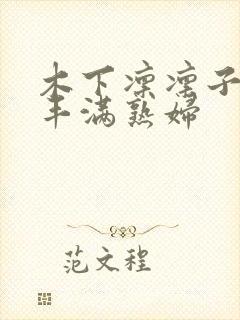 木下凛凛子
丰满熟妇
范文程